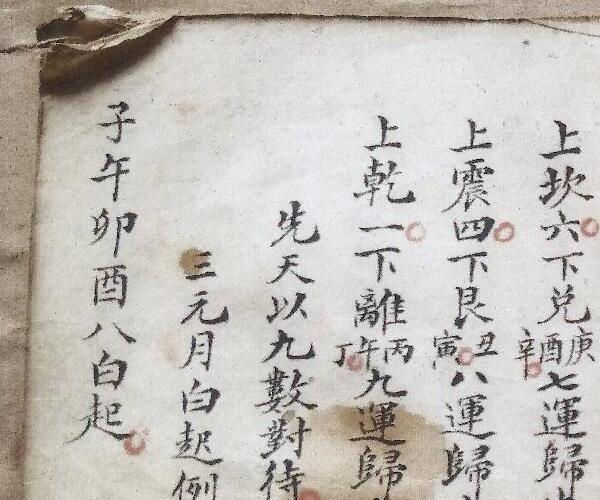 上坎六下兌庚酉辛七運歸
上震四下艮丑寅八運歸
上乾一下離丙午丁九運歸
先天以九數對待
三元月白起例
子午卯酉八白起